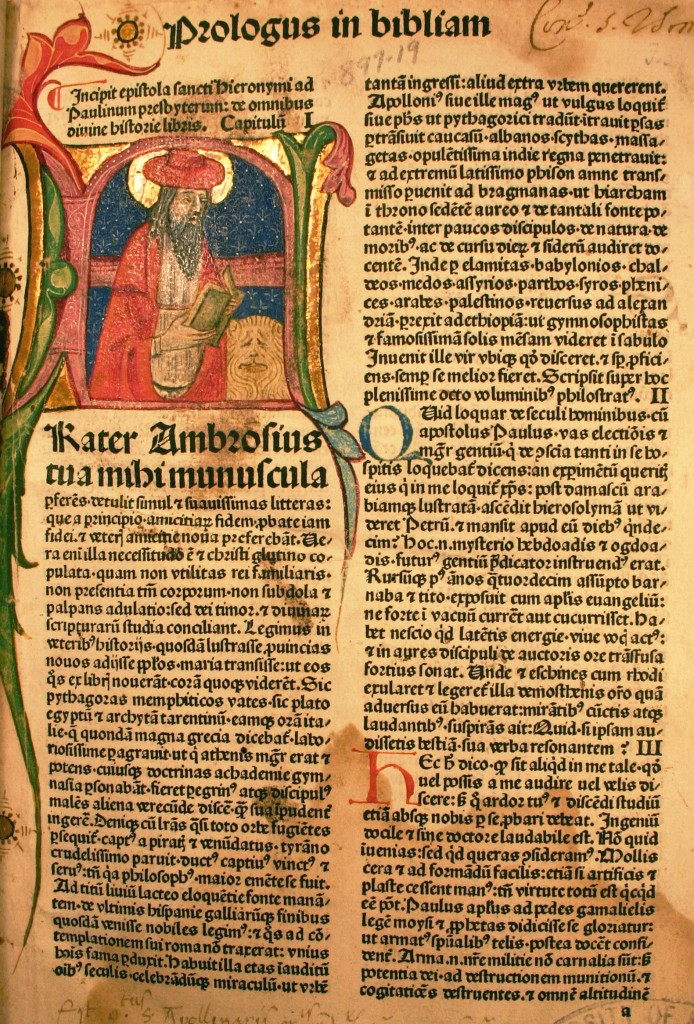 Prologus in bibliam
899-19
Incipit epistola sancti Hieronymi ad
Paulinum presbyterum: de omnibus
divine historie libris. Capitulū I
Frater Ambrosius
tua mihi munuscula
ꝑferēs·detulit simul ⁊ suauissimas litteras:
que a principio amicitiaꝝ fidem ꝓbate iam
fidei·⁊ veteris amicitie noua preferebāt. Ue-
ra eni illa necessitudo ē ⁊ christi glutino co-
pulata·quam non vtilitas rei familiaris·
non presentia tm̄ corporum·non subdola ⁊
palpans adulatio: sed dei timor·⁊ diuinaꝝ
scripturarū studia conciliant. Legimus in
veteribꝰ historijs·quosdā lustrasse ꝓuincias
nouos adijsse pp̄los·maria transisse: ut eos
qs ex libris nouerāt·corā quoqꝫ viderēt. Sic
pythagoras memphiticos vates·sic plato
egyptū ⁊ archytā tarentinū·eamqꝫ orā ita-
lie·q̄ quondā magna grecia dicebat̄·labo-
riosissime ꝑagrauit·ut q̇ athenis mgr̄ erat ⁊
potens·cuiusqꝫ doctrinas achademie gym-
nasia ꝑsonabāt·fieret ꝑegrinꝰ atqꝫ discipulꝰ
malēs aliena verecūde discē·qꝫ sua īpudent̄
ingerē. Deniqꝫ cū lr̄as q̄si toto orbe fugiētes
ꝑsequit̄·captꝰ a piratis ⁊ venūdatus·tyrāno
crudelissimo paruit·ductꝰ captiuꝰ vinctꝰ ⁊
seruꝰ: tn̄ qa philosophꝰ·maior emēte se fuit.
Ad titū liuiū lacteo eloquētie fonte manā-
tem·de vltimis hispanie galliarūqꝫ finibus
quosdā venisse nobiles legimꝰ: ⁊ q̇s ad cō-
templationem sui roma nō traxerat: vnius
hoīs fama ꝑduxit. Habuit illa etas īauditū
oībꝰ seculis·celebrādūqꝫ miraculū·ut vrbē
tantā ingressi: aliud extra vrbem quererent.
Apolloniꝰ siue ille magꝰ ut vulgus loquit̄
siue ph̄s ut pythagorici tradūt·ītrauit ꝑsas
ꝑtrāsiuit caucasū·albanos·scythas·massa-
getas·opulētissima indie regna penetrauit:
⁊ ad extremū latissimo phison amne trans-
misso ꝑuenit ad bragmanas·ut hiarcham
ī throno sedētē aureo ⁊ de tantali fonte po-
tantē·inter paucos discipulos·de natura·de
moribꝰ·ac de cursu dieꝝ ⁊ siderū audiret do-
centē. Inde ꝑ elamitas·babylonios·chal-
deos·medos·assyrios·parthos·syros·pheni-
ces·arabes·palestinos·reuersus ad alexan
driā·ꝑrexit ad ethiopiā: ut gymnosophistas
⁊ famosissimā solis mēsam videret ī sabulo
Inuenit ille vir vbiqꝫ qd̄ disceret·⁊ sp̄ ꝓfici-
ens·semꝑ se melior fieret. Scripsit super hoc
plenissime octo voluminibꝰ philostratꝰ. II
Quid loquar de seculi hominibus·cū
apostolus Paulus·vas electiōis ⁊
mgr̄ gentiū·q̇ de ꝯscia tanti in se ho-
spitis loquebat̄ dicens: an exꝑimētū queritis
eius q̇ in me loquit̄ xp̄s: post damascū ara-
biamqꝫ lustratā·ascēdit hierosolymā ut vi-
deret Petrū·⁊ mansit apud eū diebꝰ q̇nde-
cim? Hoc.n.mysterio hebdoadis ⁊ ogdoa-
dis·futurꝰ gentiū p̄dicator instruendꝰ erat.
Rursūqꝫ pꝰ ānos q̇tuordecim assūpto bar-
naba ⁊ tito·exposuit cum apl̄is euangeliū:
ne forte ī vacuū currēt aut cucurrisset. Ha-
bet nescio qd̄ latētis energie·viue vocis actꝰ:
⁊ in aures discipuli de auctoris ore trāsfusa
fortius sonat. Unde ⁊ eschines cum rhodi
exularet ⁊ legeret̄ illa demosthenis orō quā
aduersus eū habuerat: mirātibꝰ cūctis atqꝫ
laudantibꝰ·suspirās ait: Quid·si ipsam au-
dissetis bestiā·sua verba resonantem? III
Hec h̄ dico·qꝫ sit aliqd̄ in me tale·qd̄
uel possis a me audire uel velis di-
scere: s̄ q̇ ardor tuꝰ ⁊ discēdi studiū
etiā absqꝫ nobis ꝑ se ꝓbari debeat. Ingeniū
docile ⁊ sine doctore laudabile est. Nō quid
iuenias: sed qd̄ queras ꝯsideramꝰ. Mollis
cera ⁊ ad formādū facilis: etiā si artificis ⁊
plaste cessent manꝰ: tn̄ virtute totū est q̇cqd̄
eē pōt. Paulus apl̄us ad pedes gamalielis
legē moysi ⁊ ꝓphetas didicisse se gloriatur:
ut armatꝰ spūalibꝰ telis·postea docēt confi-
dent̄. Arma.n.nr̄e militie nō carnalia sūt: s̄
potentia dei·ad destructionem munitionū·⁊
cogitatiōes destruentes·⁊ omnē altitudinē
a